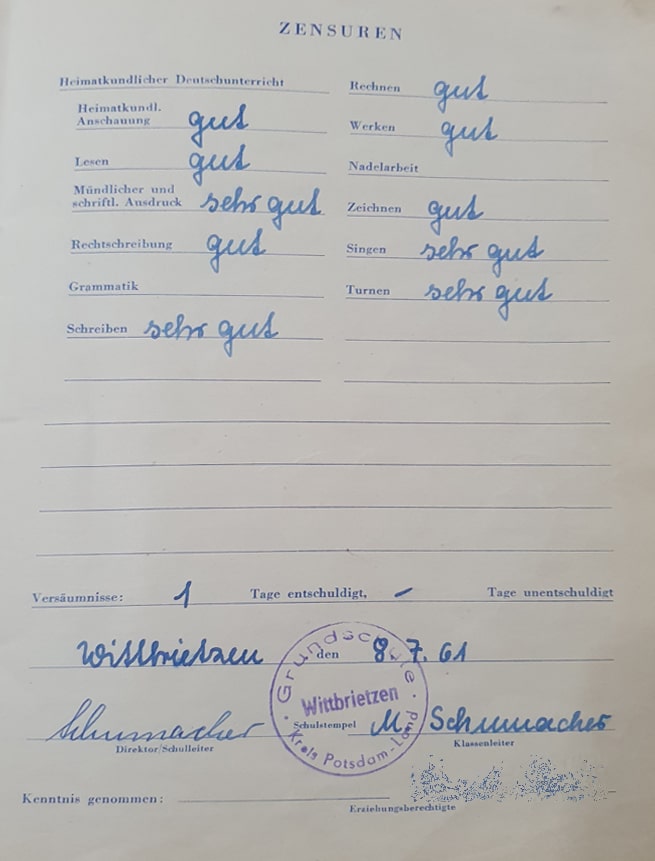 ZENSUREN
Heimatkundlicher Deutschunterricht
Heimatkundl.
Anschauung gut
Lesen gut
Mündlicher und
schriftl. Ausdruck sehr gut
Rechtschreibung gut
Grammatik
Schreiben sehr gut
Rechnen gut
Werken gut
Nadelarbeit
Zeichnen gut
Singen sehr gut
Turnen sehr gut
Versäumnisse: 1 Tage entschuldigt, – Tage unentschuldigt
Wittbrietzen den 8.7.61
Grundschule
Wittbrietzen
Kreis Potsdam-Land
Schumacher Schulstempel M. Schumacher
Direktor/Schulleiter Klassenleiter
Kenntnis genommen:
Erziehungsberechtigte